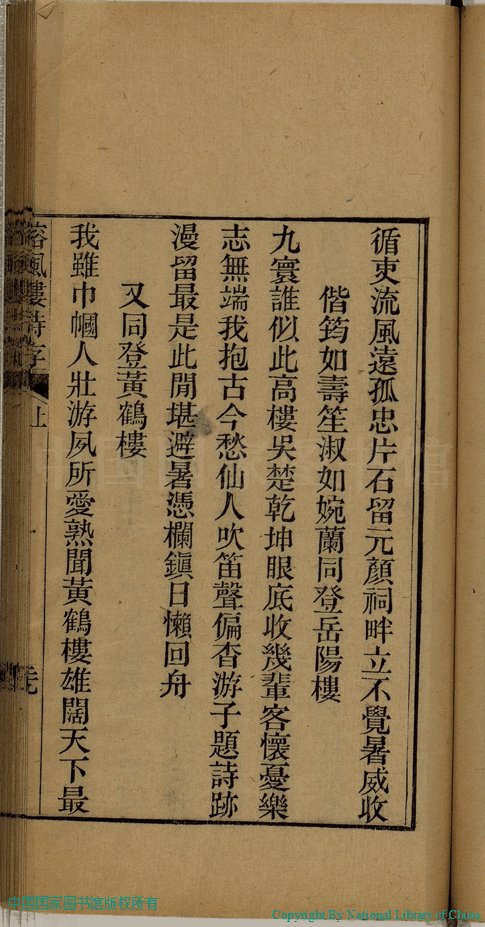 循吏流風遠孤忠片石留元顏祠畔立不覺暑威收
偕筠如壽笙淑如婉蘭同登岳陽樓
九寰誰似此高樓吳楚乾坤眼底收幾輩客懷憂樂
志無端我抱古今愁仙人吹笛聲偏杳游子題詩跡
漫留最是此閒堪避暑憑欄鎮日懶回舟
又同登黃鶴樓
我雖巾幗人壯游夙所愛熟聞黃鶴樓雄闊天下最
風樓詩存
上
中国国家图书馆版权所有
Copyright By National Library of China